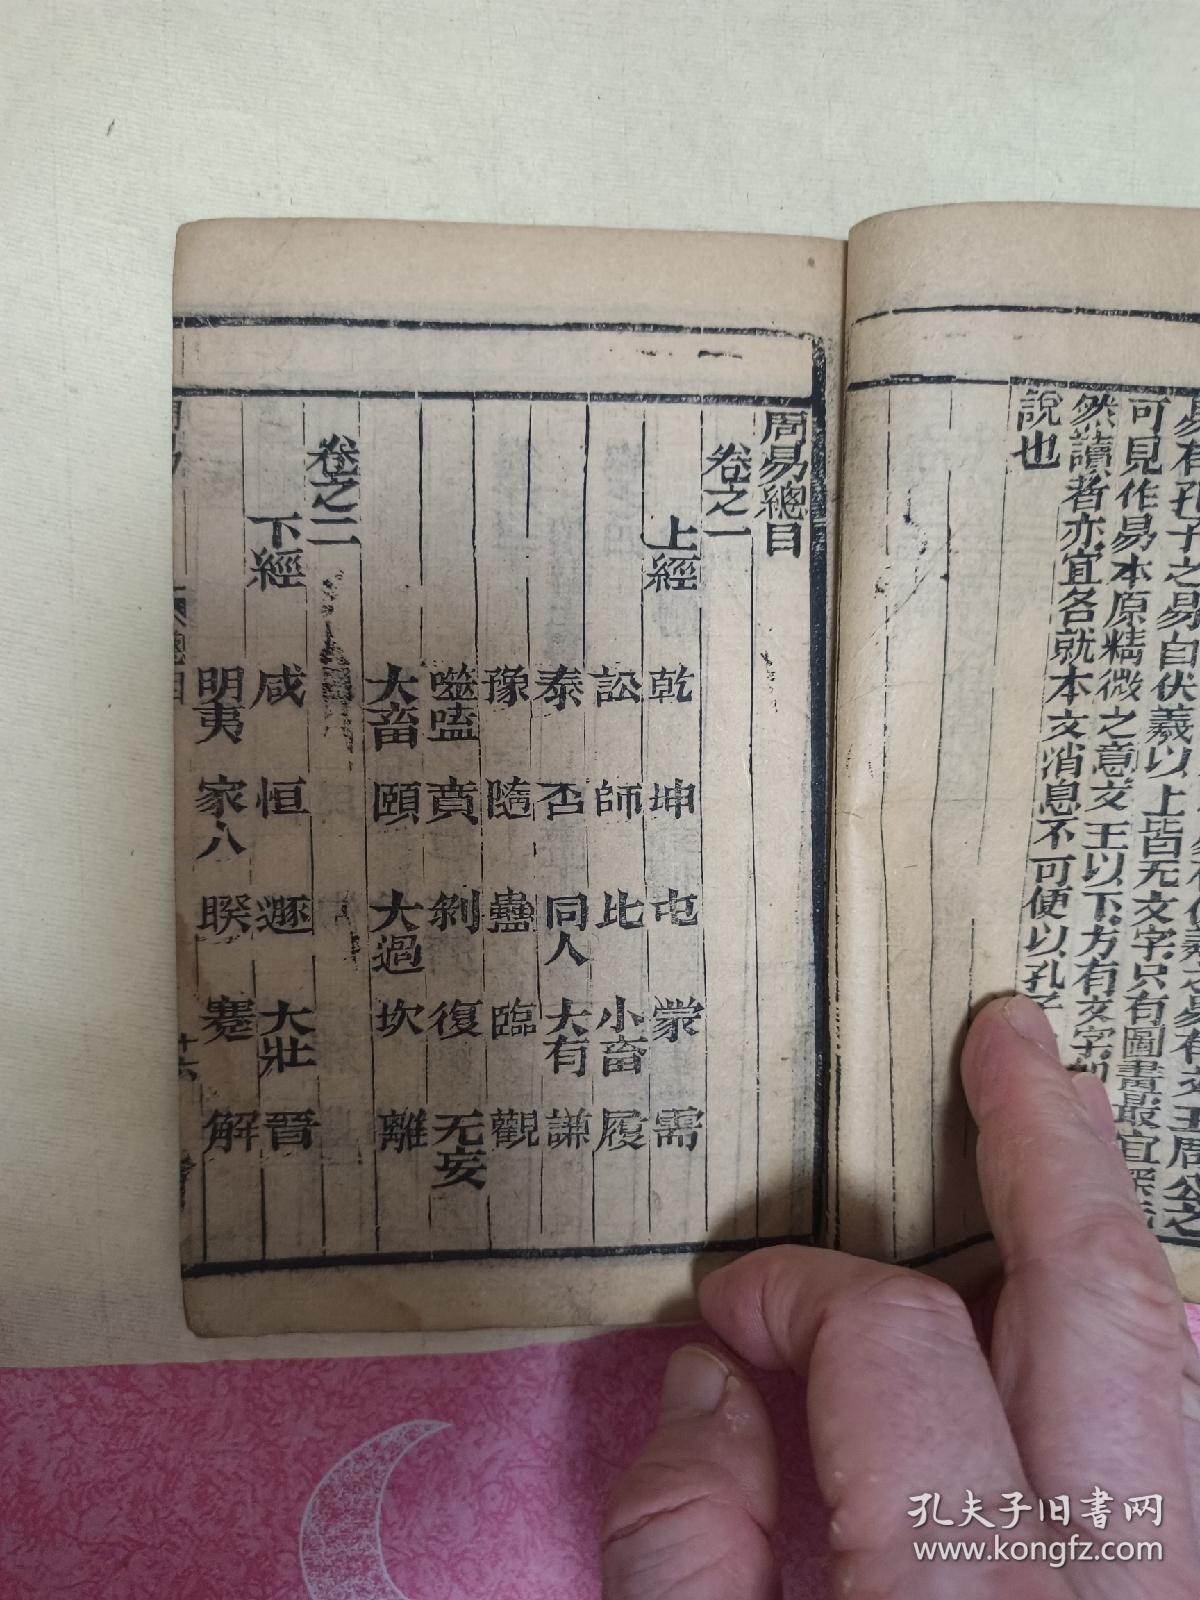 易有孔子之易自伏羲以上皆无文字只有圖畫最宜深
可見作易本原精微之意文王以下方有文字
然讀者亦宜各就本文消息不可便以孔子
說也
周易總目
卷之一
上經
乾 坤 屯 蒙 需
訟 師 比 小畜 履
泰 否 同人 大有 謙
豫 隨 蠱 臨 觀
噬嗑 賁 剝 復 无妄
大畜 頤 大過 坎 離
卷之二
下經
咸 恒 遯 大壯 晉
明夷 家人 睽 蹇 解
總目
十六
孔夫子旧书网
www.kongfz.com